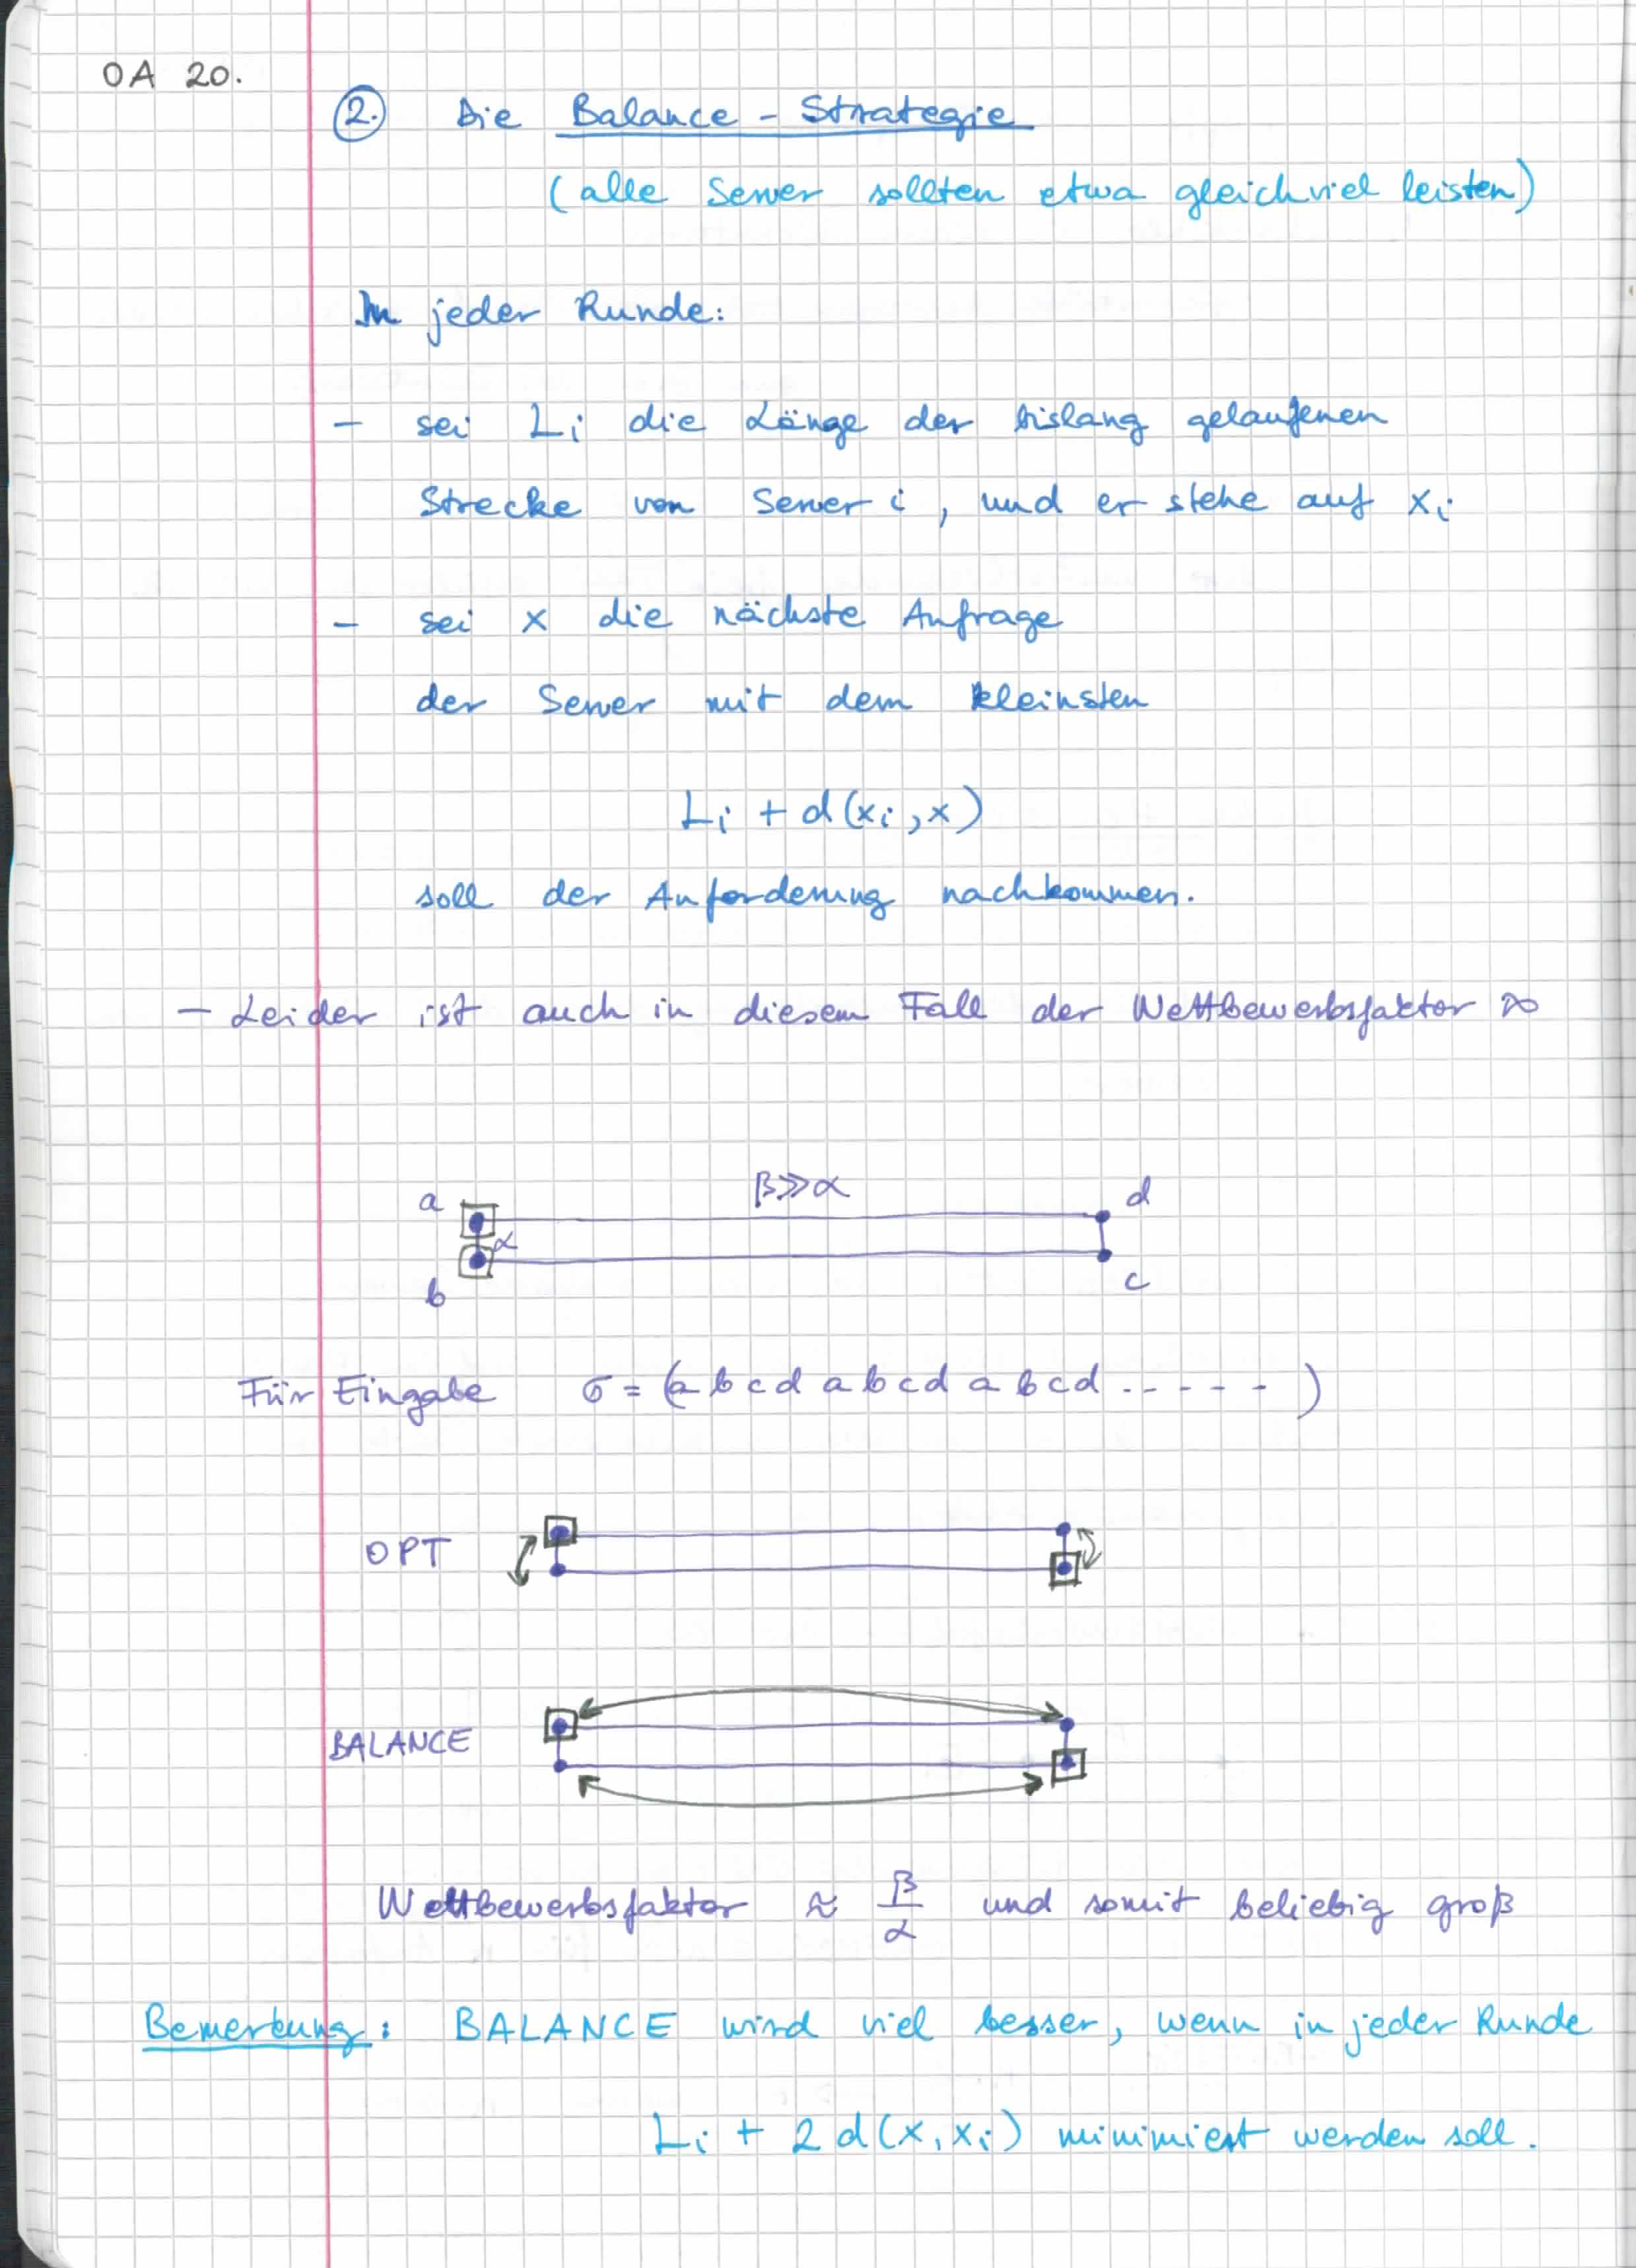 OA 20.
2. Die Balance - Strategie
(alle Server sollten etwa gleichviel leisten)
In jeder Runde:
- sei Li die Länge der bislang gelaufenen
Strecke von Server i, und er stehe auf xi
- sei x die nächste Anfrage
der Server mit dem kleinsten
Li + d(xi, x)
soll der Anforderung nachkommen.
- Leider ist auch in diesem Fall der Wettbewerbsfaktor ∞
a β≫α d
α
b c
Für Eingabe σ = (a b c d a b c d a b c d . - - - - )
OPT
BALANCE
Wettbewerbsfaktor ≈ β/α und somit beliebig groß
Bemerkung: BALANCE wird viel besser, wenn in jeder Runde
Li + 2 d(x, xi) minimiert werden soll.